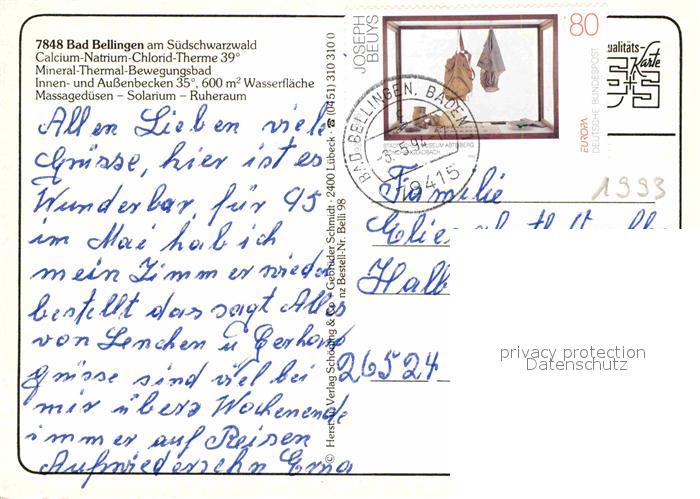 7848 Bad Bellingen am Südschwarzwald
Calcium-Natrium-Chlorid-Therme 39°
Mineral-Thermal-Bewegungsbad
Innen- und Außenbecken 35°, 600 m² Wasserfläche
Massagedüsen – Solarium – Ruheraum
Allen Lieben viele
Grüsse, hier ist es
Wunderbar, für 95
im Mai hab ich
mein Zimmer wieder
bestellt das sagt Alles
von Lenchen u Gerhard
grüsse sind viel bei
mir übers Wochenende
immer auf Reisen
Aufwiedersehn Erna
Gebrüder Schmidt · 2400 Lübeck · ☎ (04 51) 310 310
Verlag Schöning & Co
Bestell-Nr. Belli 98
JOSEPH
BEUYS
80
EUROPA
DEUTSCHE BUNDESPOST
BAD BELLINGEN, BADEN
79415
Qualitäts-
Karte
1993
Familie
Halb
26524
privacy protection
Datenschutz